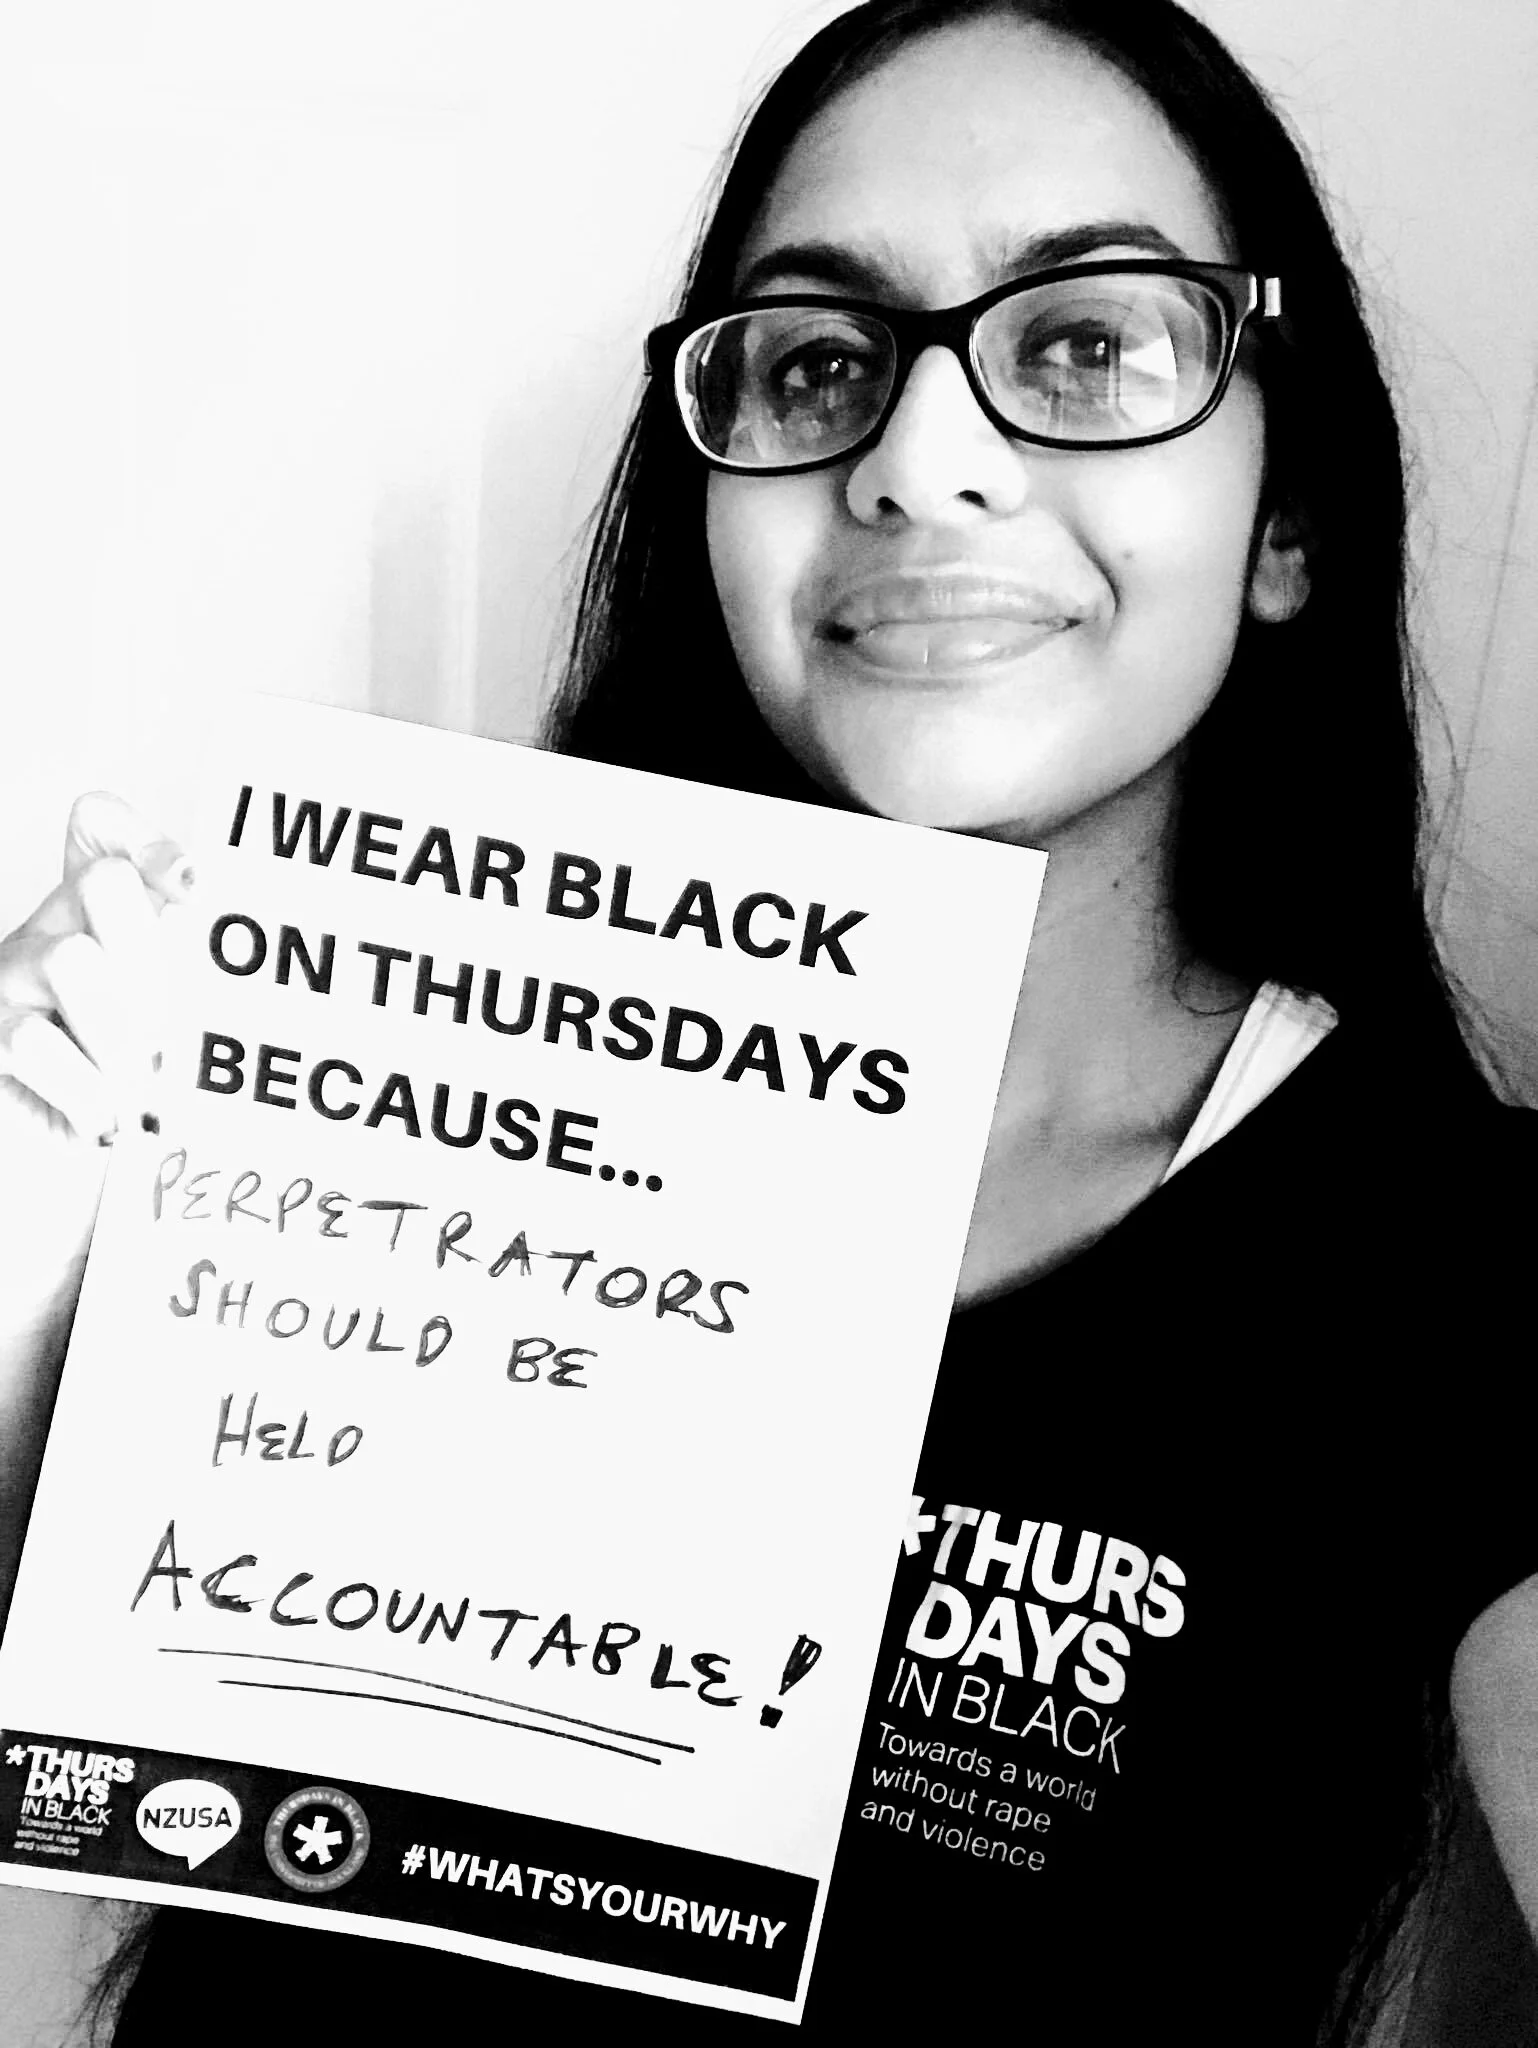 I WEAR BLACK
ON THURSDAYS
BECAUSE...
PERPETRATORS
SHOULD BE
HELD
ACCOUNTABLE!
*THURS
DAYS
IN BLACK
Towards a world
without rape
and violence
NZUSA
#WHATSYOURWHY
*THURS
DAYS
IN BLACK
Towards a world
without rape
and violence